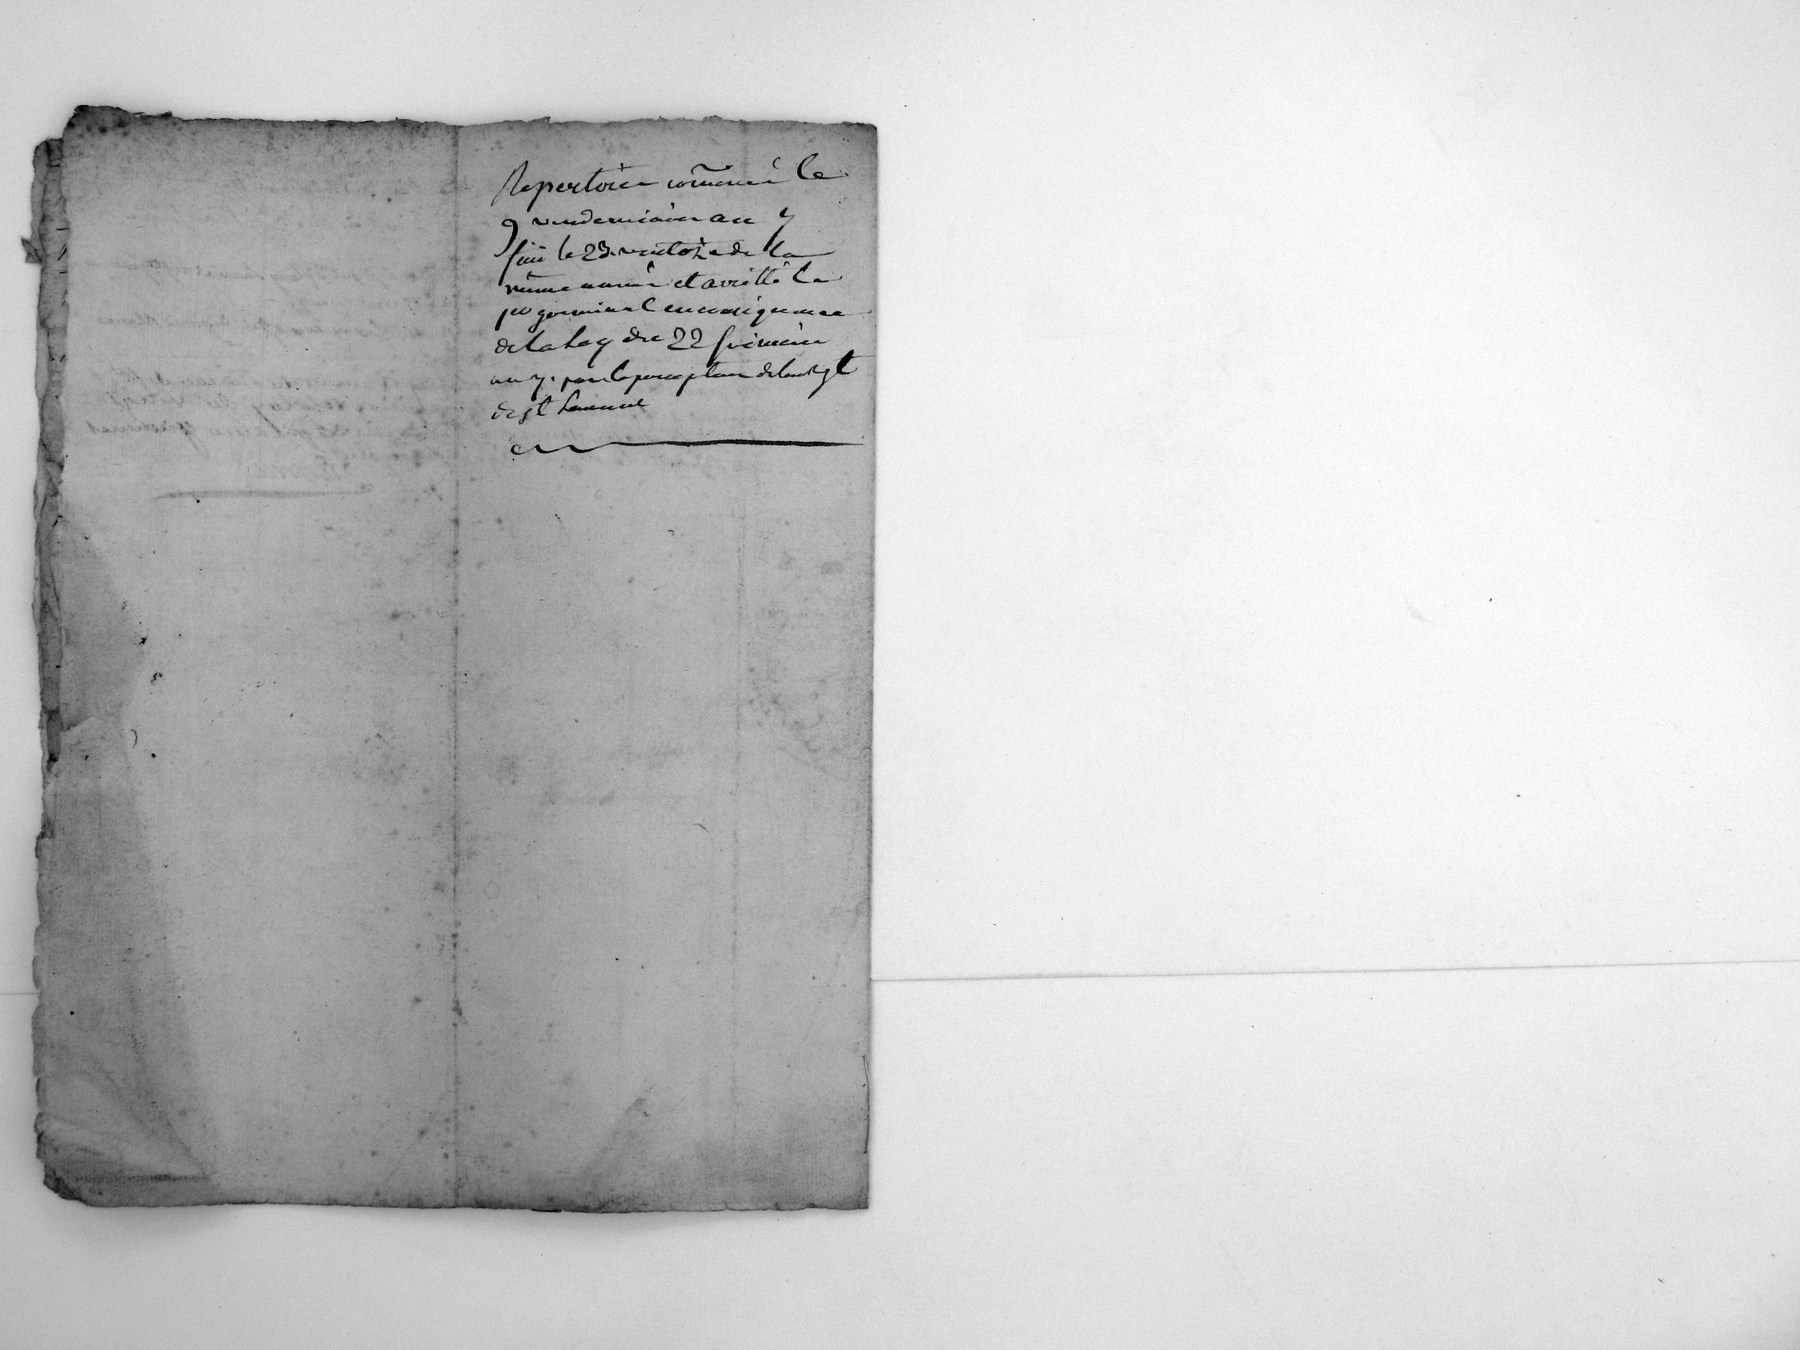 Repertoire com̃encé le
9 vendemiaire an 7
fini le 23 ventose de la
mẽme année et arretté le
pr germinal en consequence
de la Loy du 22 frimaire
an 7. par le percepteur de l'enregt
de st